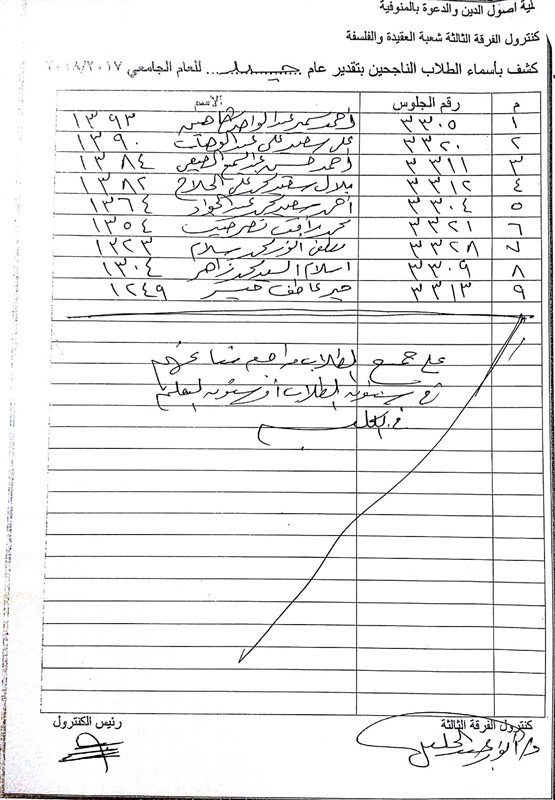 لية اصول الدين والدعوة بالمنوفية
كنترول الفرقة الثالثة شعبة العقيدة والفلسفة
كشف بأسماء الطلاب الناجحين بتقدير عام جيد للعام الجامعي ٢٠١٨/٢٠١٧
م رقم الجلوس الاسم
١ ٣٣٠٥ احمد سمير عبدالواحد شاهين ١٣٩٣
٢ ٣٣٢٠ على سعيد على عبدالوهاب ١٣٩٠
٣ ٣٣١١ احمد حسن عبدالسميع ١٣٨٤
٤ ٣٣١٢ بلال سعيد محمد على الحلاج ١٣٨٢
٥ ٣٣٠٤ احمد سعيد محمد عبدالجواد ١٣٦٤
٦ ٣٣٢١ محمد رأفت نصر ١٣٥٤
٧ ٣٣٢٨ مصطفى انور محمد سلام ١٣٢٣
٨ ٣٣٠٩ اسلام السعيد محمد زاهر ١٣٠٤
٩ ٣٣١٣ عاطف ١٢٤٩
على جميع الطلاب مراجعة
شئون الطلاب أو شئون التعليم
في الكلية
كنترول الفرقة الثالثة رئيس الكنترول